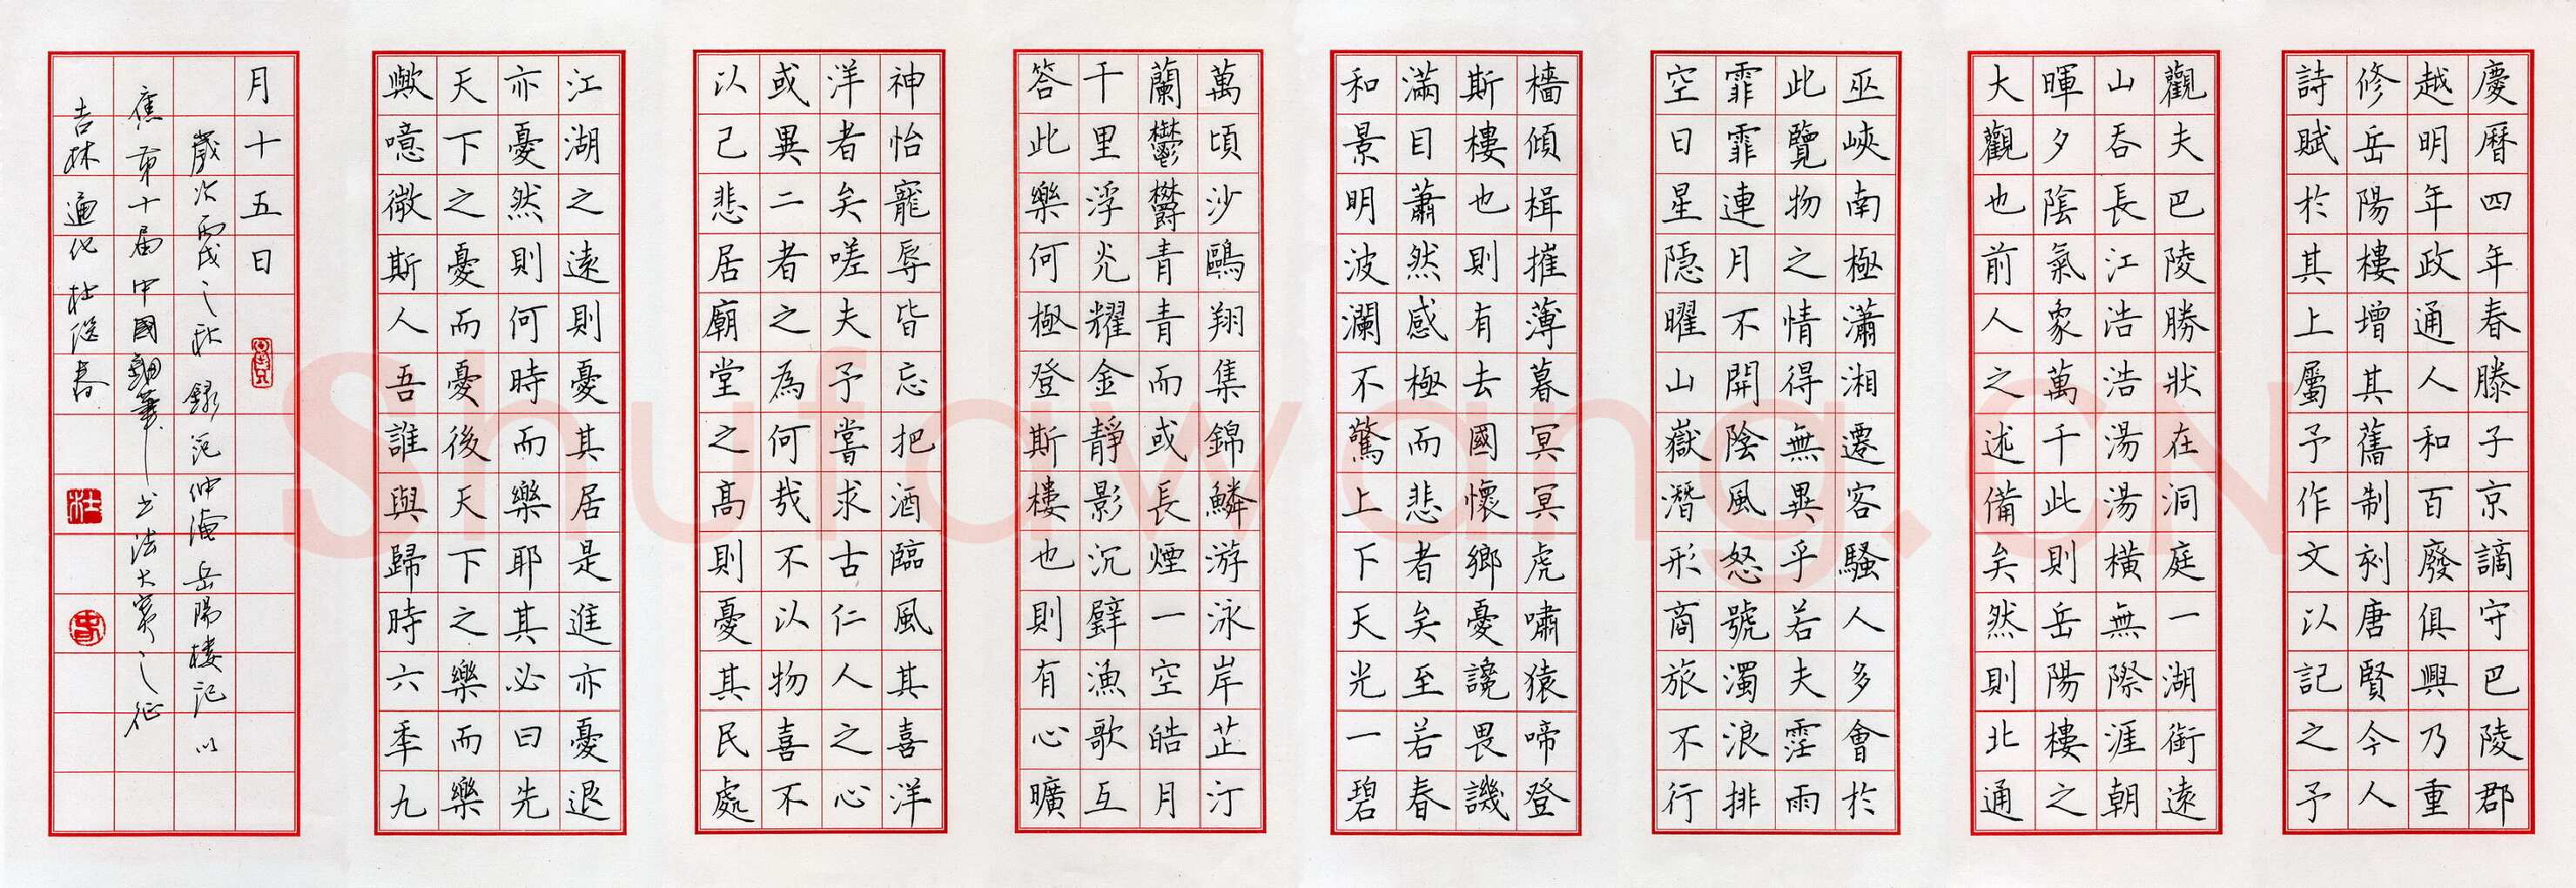 慶曆四年春滕子京謫守巴陵郡
越明年政通人和百廢俱興乃重
修岳陽樓增其舊制刻唐賢今人
詩賦於其上屬予作文以記之予
觀夫巴陵勝狀在洞庭一湖銜遠
山吞長江浩浩湯湯橫無際涯朝
暉夕陰氣象萬千此則岳陽樓之
大觀也前人之述備矣然則北通
巫峽南極瀟湘遷客騷人多會於
此覽物之情得無異乎若夫霪雨
霏霏連月不開陰風怒號濁浪排
空日星隱曜山嶽潛形商旅不行
檣傾楫摧薄暮冥冥虎嘯猿啼登
斯樓也則有去國懷鄉憂讒畏譏
滿目蕭然感極而悲者矣至若春
和景明波瀾不驚上下天光一碧
萬頃沙鷗翔集錦鱗游泳岸芷汀
蘭鬱鬱青青而或長煙一空皓月
千里浮光耀金靜影沉璧漁歌互
答此樂何極登斯樓也則有心曠
神怡寵辱皆忘把酒臨風其喜洋
洋者矣嗟夫予嘗求古仁人之心
或異二者之為何哉不以物喜不
以己悲居廟堂之高則憂其民處
江湖之遠則憂其居是進亦憂退
亦憂然則何時而樂耶其必曰先
天下之憂而憂後天下之樂而樂
歟噫微斯人吾誰與歸時六年九
月十五日
歲次丙戌之秋錄范仲淹岳陽樓記以
應第十届中國鋼筆书法大賽之征
吉林通化杜延春
杜
Shufawang.CN